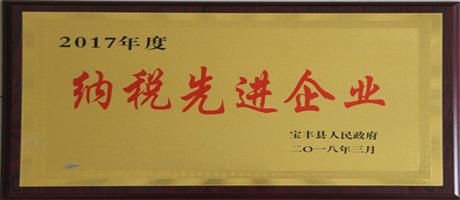 2017年度
纳税先进企业
宝丰县人民政府
二〇一八年三月